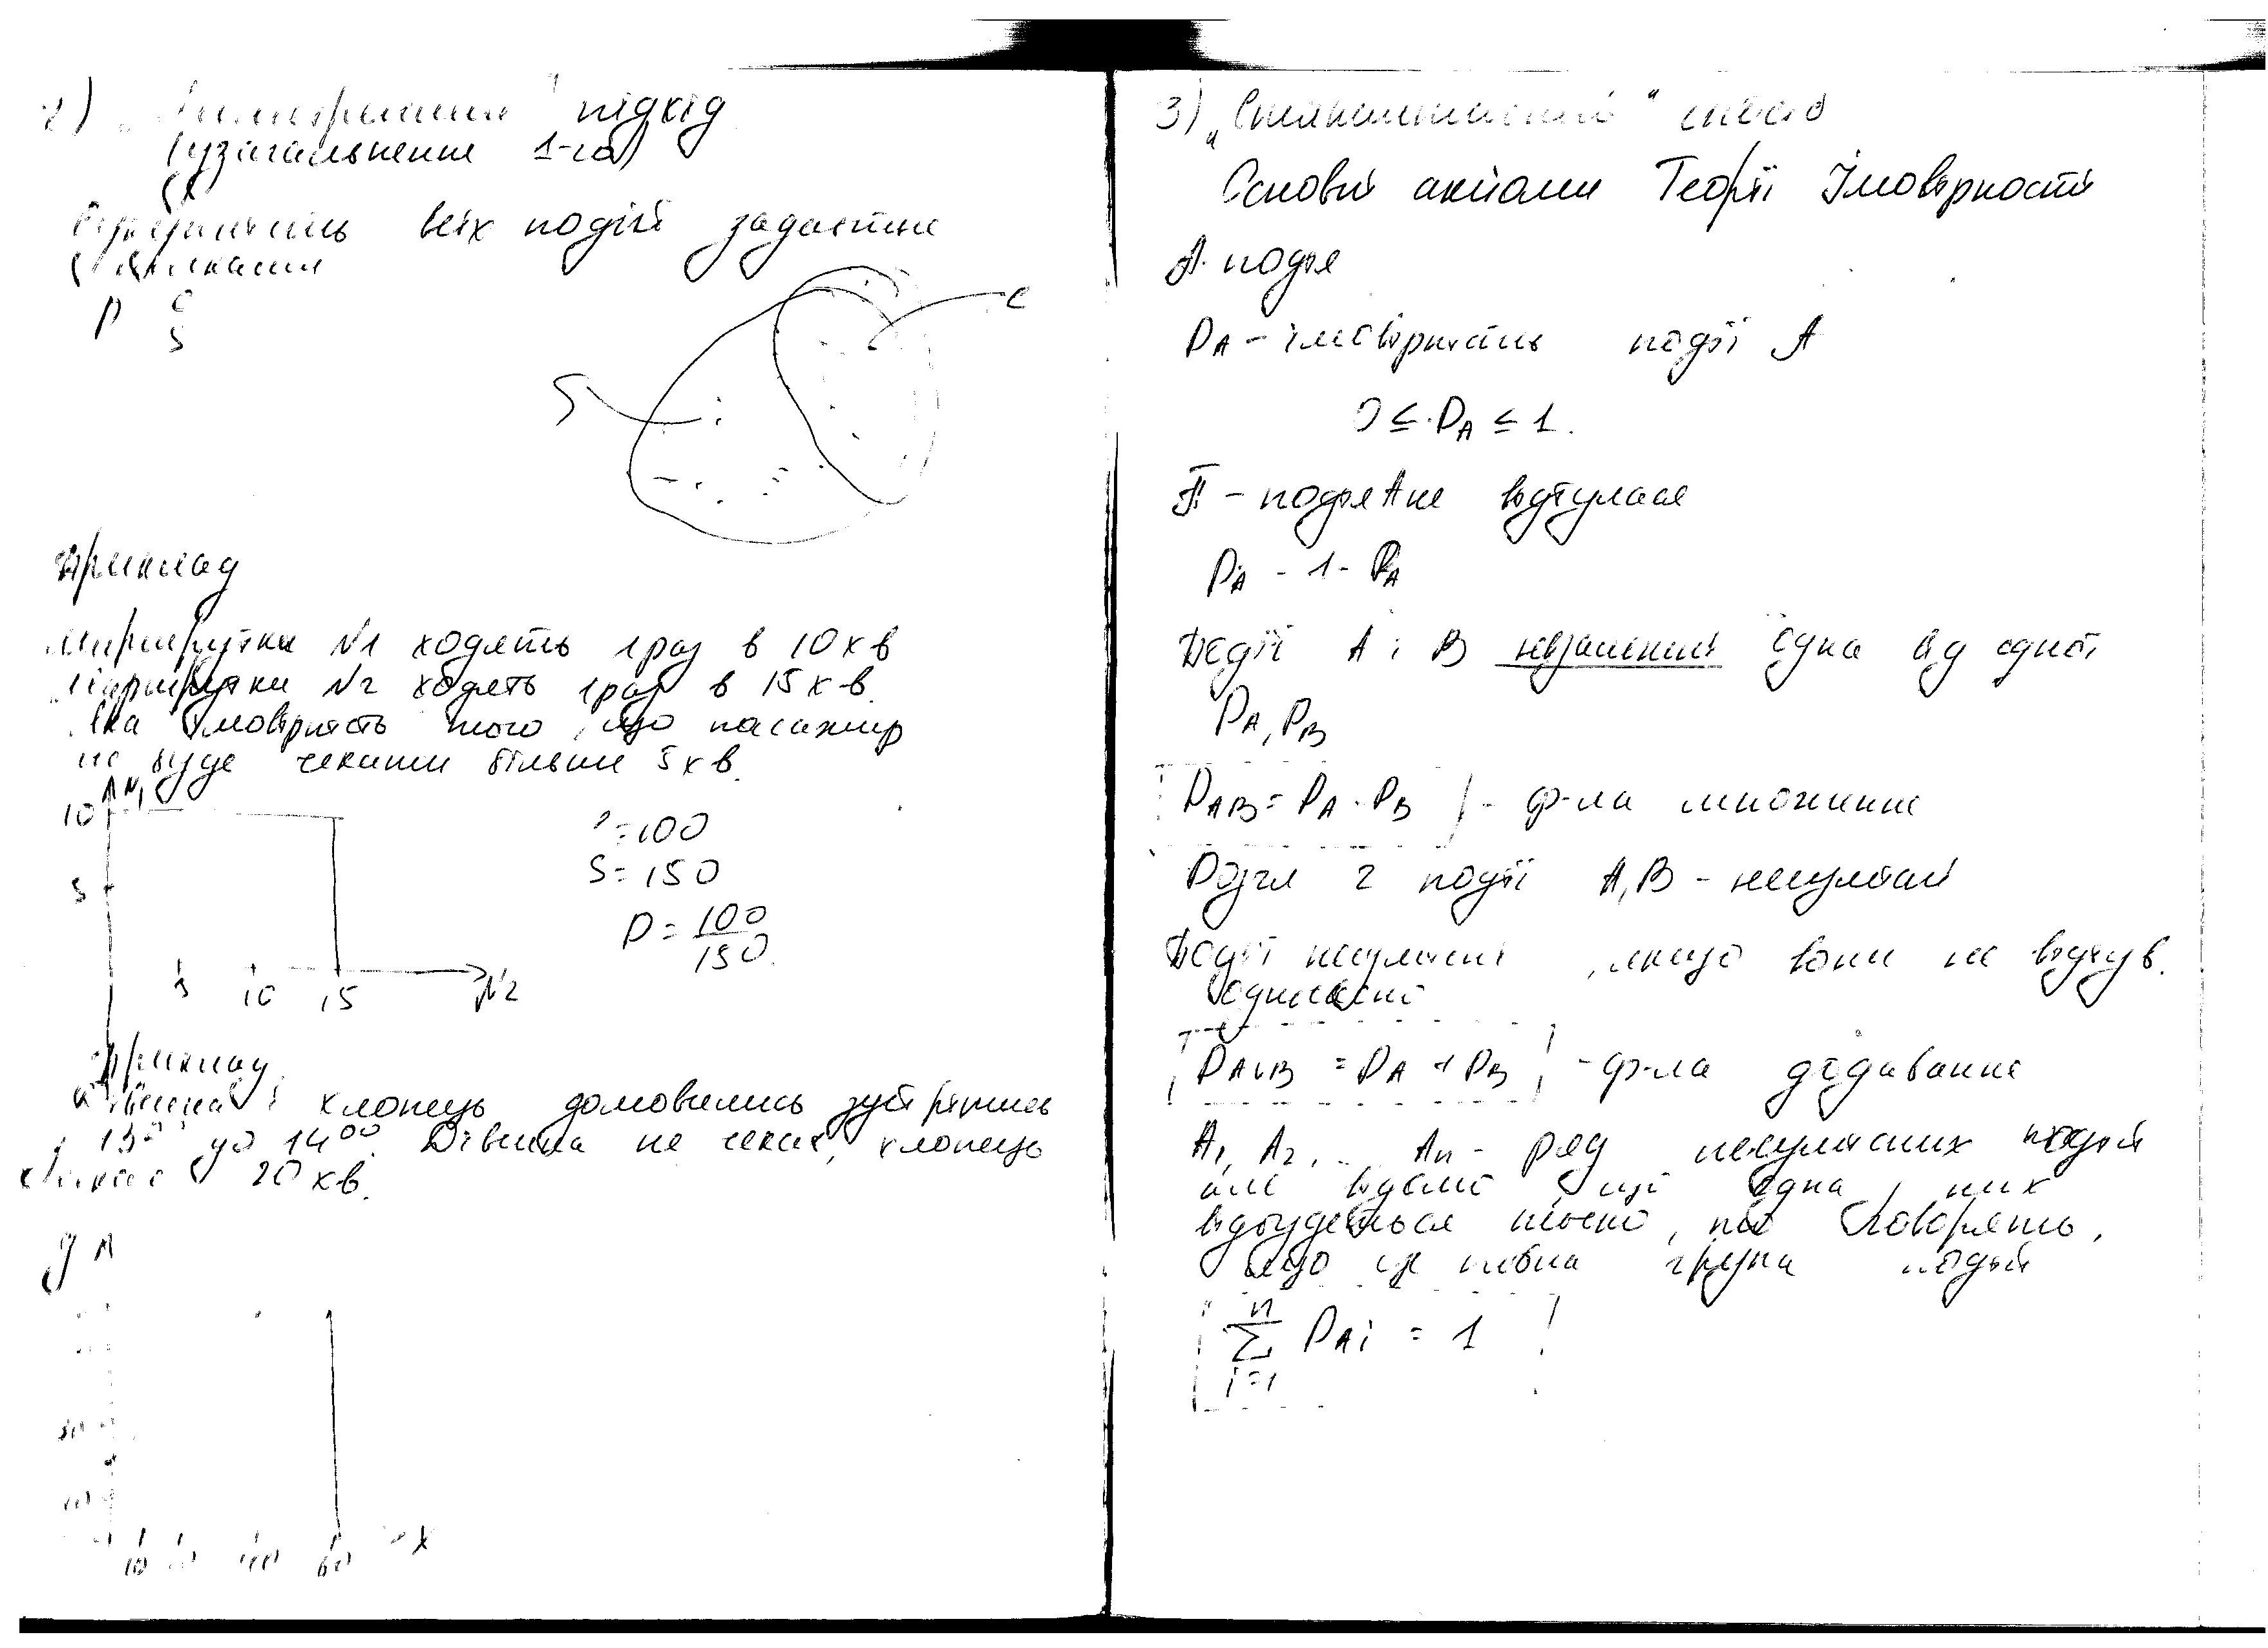 2) " підхід
(узагальнення 1-го)
всіх подій задається
P
S
S
Приклад
Маршрутки №1 ходять 1 раз в 10 хв
Маршрутки №2 ходять 1 раз в 15 хв.
Яка імовірність того, що пасажир
не буде чекати більше 5 хв.
10
5
5 10 15 №2
= 100
S = 150
P = 100/150.
Приклад
Дівчина і хлопець домовились зустрітись
з 13 до 14 00. Дівчина не чекає, хлопець
чекає 20 хв.
y
10 40 60 x
3) "Статистичний"
Основні аксіоми Теорії Імовірності
A - подія
P_A - імовірність події A
0 ≤ P_A ≤ 1.
Ā - подія A не відбулася
P_Ā = 1 - P_A
Події A і B незалежні одна від одної
P_A, P_B
P_AB = P_A · P_B - ф-ла множення
Розгл 2 події A, B - несумісні
Події несумісні, якщо вони не відбув.
одночасно
P_A∪B = P_A + P_B - ф-ла додавання
A₁, A₂, ... Aₙ - ряд несумісних подій
але відомо що одна з них
відбудеться точно, то говорять,
що це повна група подій
∑_{i=1}^{n} P_Ai = 1